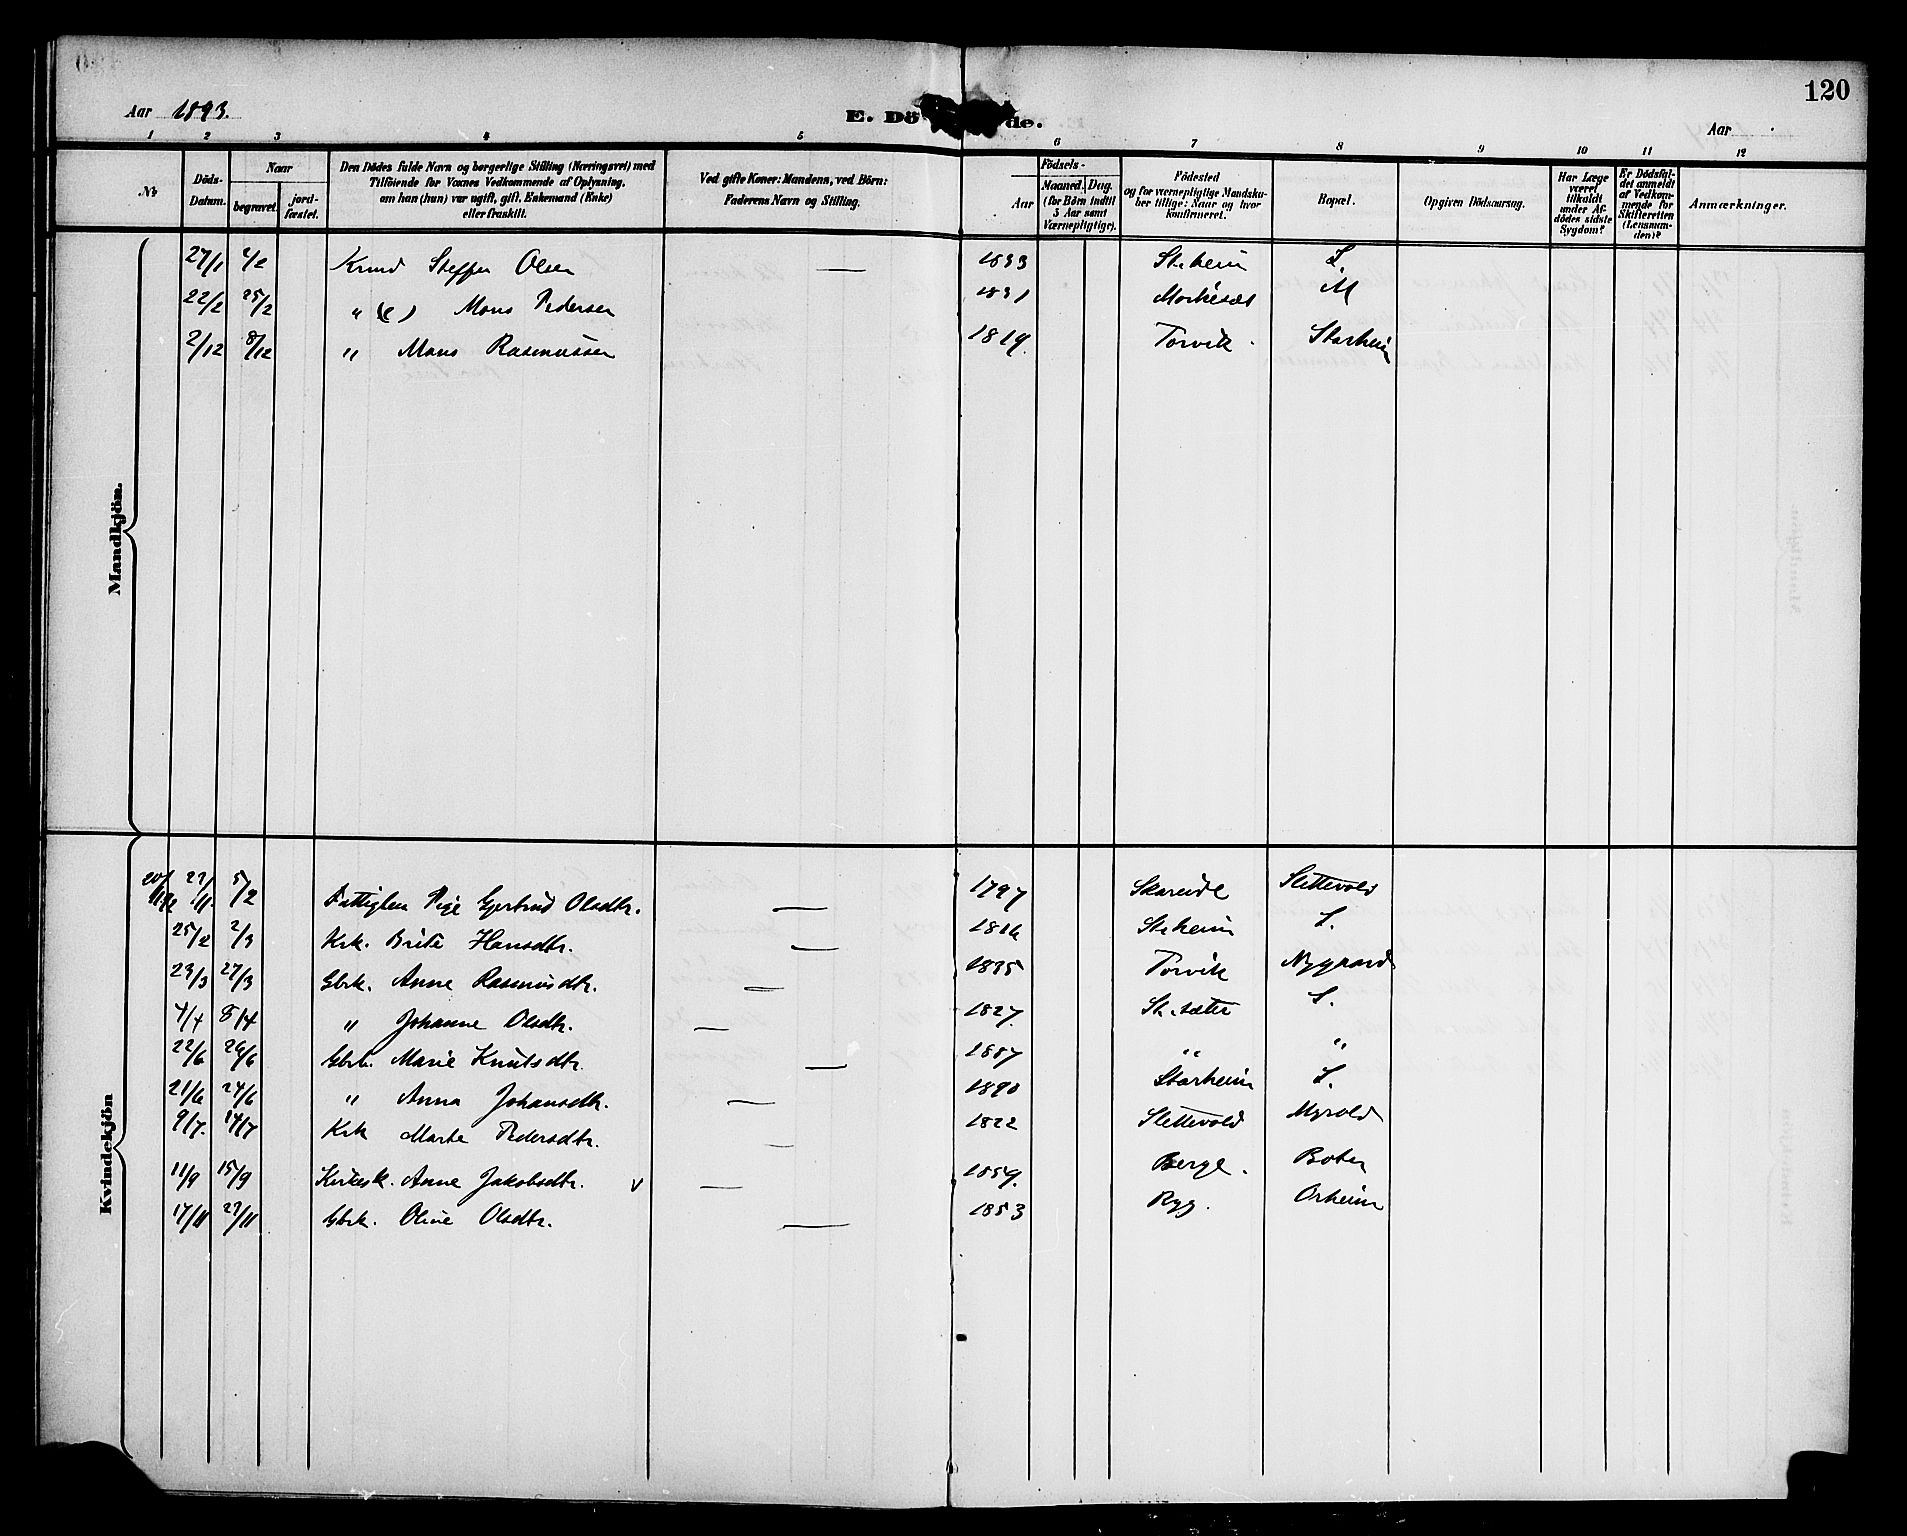 120
Aar 1893.
E. Dö de.
Aar
1 2 3 4 5 6 7 8 9 10 11 12
№
Döds-Datum.
Naar
begravet.
jord-fæstet.
Den Dödes fulde Navn og borgerlige Stilling (Næringsvei) med
Tilföiende for Voxnes Vedkommende af Oplysning,
om han (hun) var ugift, gift, Enkemand (Enke)
eller fraskilt.
Ved gifte Koner: Mandens, ved Börn:
Faderens Navn og Stilling.
Födsels-
Aar
Maaned. Dag.
(for Börn indtil
5 Aar samt
Værnepligtige).
Födested
og for værnepligtige Mandska-
ber tillige: Naar og hvor
konfirmeret.
Bopæl.
Opgiven Dödsaarsag.
Har Læge
været
tilkaldt
under Af-
dödes sidste
Sygdom?
Er Dödsfal-
det anmeldt
af Vedkom-
mende for
Skifteretten
(Lensman-
den)?
Anmærkninger.
Mandkjön.
27/1 4/2 Steffen Olsen — 1833 St.heim S.
22/2 25/2 " Mons Pedersen 1831 M
2/12 8/12 " Mons Rasmussen 1819. Torvik. Starheim
Kvindekjön
5/2 Pige Gjertrud Olsdtr. — 1797 Skareide Slettevold
25/2 2/3 Krk. Brite Hansdtr. — 1816 St.heim S.
23/3 27/3 Gbrk. Anne Rasmusdtr. — 1835 Torvik Nygaard
4/4 8/4 " Johanne Olsdtr. — 1827. St.sæter S.
22/6 26/6 Marie Knutsdtr. — 1887 " "
21/6 24/6 " Anna Johansdtr. — 1890 Starheim S.
9/7. 14/7 Krk Marte Pedersdtr. — 1822 Slettevold Myrold
11/9 15/9 Anne Jakobsdtr. v — 1859. Berge.
17/11 27/11 Gbrk. Oline Olsdtr. — 1853 Ryg. Orheim